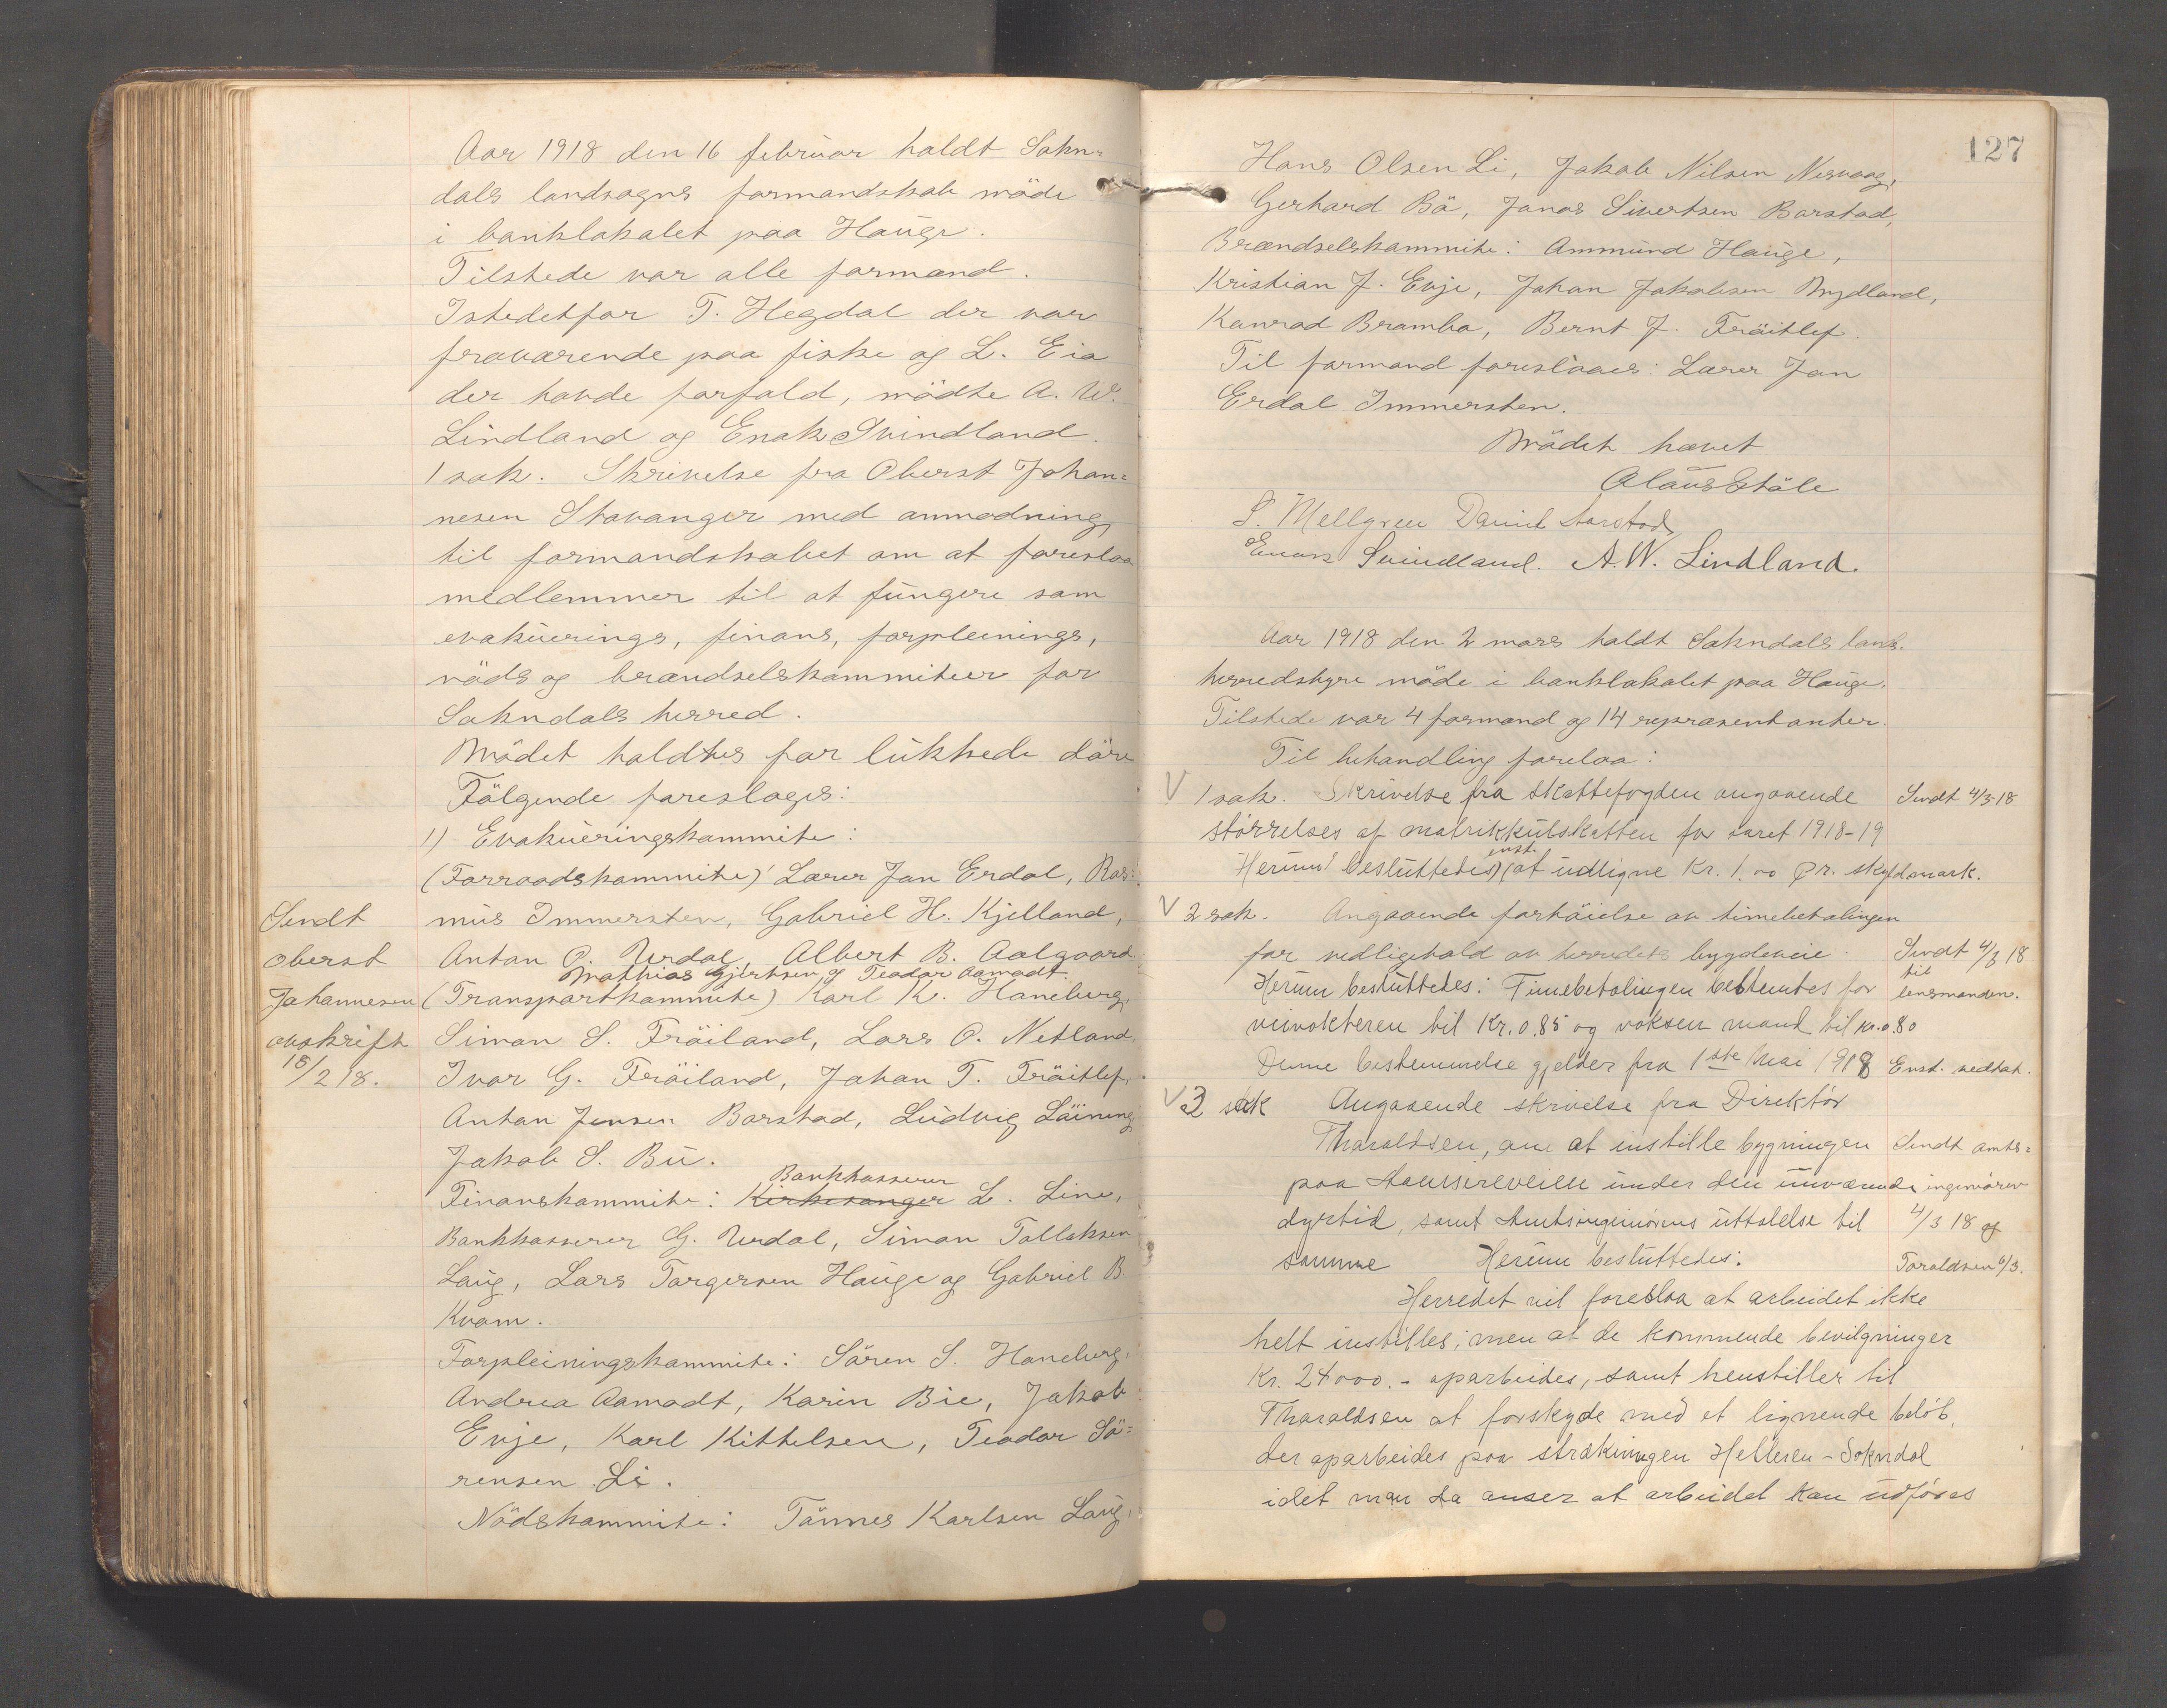 Aar 1918 den 16 februar holdt Sokn-
dals landsogns formandskab möde
i banklokalet paa Hauge.
Tilstede var alle formænd.
Istedetfor T. Hegdal der var
fraværende paa fiske og L. Eia
der havde forfald, mödte A. W.
Lindland og Enok Svindland.
1 sak. Skrivelse fra Oberst Johan-
nesen Stavanger med anmodning
til formandskabet om at foreslaa
medlemmer til at fungere som
evakuerings, finans, forpleinings,
nöds og brændselskommiteer for
Sokndals herred.
Mödet holdtes for lukkede döre
Fölgende foresloges:
1) Evakueringskommite:
(Forraadskommite) Lærer Jon Erdal, Ras-
Sendt
oberst
Johannesen
avskrift
18/2 18.
mus Immerstein, Gabriel H. Kjelland,
Anton O. Urdal, Albert B. Aalgaard
Mathias Gjertsen og Teodor Aamodt.
(Transportkommite) Karl K. Haneberg,
Simon S. Fröiland, Lars O. Netland
Ivar G. Fröiland, Johan T. Fröitlef,
Anton Jensen Barstad, Ludvig Löining
Jakob S. Bu.
Bankkasserer
Finanskommite: Kirkesanger L. Line,
Bankkasserer G. Urdal, Simon Tollaksen
Laug, Lars Torgersen Hauge og Gabriel B.
Kvam.
Forpleiningskommite: Sören S. Haneberg,
Andrea Aamodt, Karin Bie, Jakob
Evje, Karl Kittelsen, Teodor Sö-
rensen Li.
Nödskommite: Tönnes Karlsen Laug,
127
Hans Olsen Li, Jakob Nilsen Nesvaag,
Gerhard Bö, Jonas Sivertsen Barstad,
Brændselskommite: Ammund Hauge,
Kristian J. Evje, Johan Jakobsen Mydland,
Konrad Brambo, Bernt J. Fröitlef.
Til formand foreslaaes: Lærer Jon
Erdal Immerstein.
Mödet hævet
Olaus Eböle
S. Mellgren Daniel Barstad
Enok Svindland. A. W. Lindland.
Aar 1918 den 2 mars holdt Sokndals lands.
herredstyre möde i banklokalet paa Hauge.
Tilstede var 4 formænd og 14 repræsentanter.
Til behandling forelaa:
V 1 sak. Skrivelse fra skattefogden angaaende
Sendt 4/3-18
störrelses af matrikkulskatten for aaret 1918-19
enst.
Herum besluttedes at udligne Kr. 1.00 Pr. skyldmark.
V 2 sak. Angaaende forhöielse av timebetalingen
for vedligehold av herredets bygdeveie.
Sendt 4/3 18
til
lensmanden.
Herum besluttedes: Timebetalingen bestemtes for
veivokteren til Kr. 0.85 og voksen mand til kr. 0.80
Denne bestemmelse gjelder fra 1ste Mai 1918
Enst. vedtat.
V 3 sak Angaaende skrivelse fra Direktör
Tharaldsen, om at instille bygningen
Sendt amts-
ingeniören
4/3 18 og
Toraldsen 6/3.
paa veien under den nuværende
dyrtid, samt Amtsingeniörens uttalelse til
samme Herum besluttedes:
Herredet vil foreslaa at arbeidet ikke
helt instilles; men at de kommende bevilgninger
Kr. 24000.- oparbeides, samt henstiller til
Tharaldsen at forskyde med et lignende belöb,
der oparbeides paa strækningen Helleren - Sokndal
idet man da anser at arbeidet kan udföres